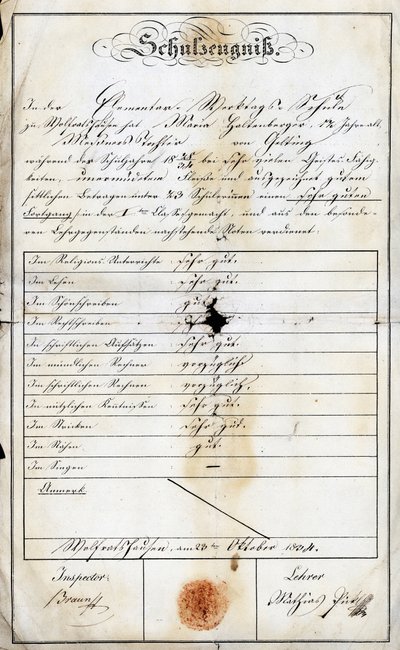 Schulzeugniß.
In der Elementar-Werktags-Schule
zu Wolfratshausen hat Maria Holtenberger, 12 Jahre alt,
Meßners Tochter von Gelting
während der Schuljahre 18 33/34 bei sehr vielen Geistes-Fähig-
keiten, unermüdetem Fleiße und ausgezeichnet gutem
sittlichen Betragen unter 73 Schülerinen einen sehr guten
Fortgang in der I ten Classe gemacht, und aus den besonde-
ren Lehrgegenständen nachstehende Noten verdienet:
Im Religions-Unterrichte sehr gut.
Im Lesen sehr gut.
Im Schönschreiben gut.
Im Rechtschreiben
In schriftlichen Aufsätzen sehr gut.
Im mündlichen Rechnen vorzüglich
Im schriftlichen Rechnen vorzüglich.
In nützlichen Kentnissen sehr gut.
Im Stricken sehr gut.
Im Nähen gut.
Im Singen —
Anmerk.
Wolfratshausen, am 23ten Oktober 1834.
Inspector: Lehrer
Braun Mathias